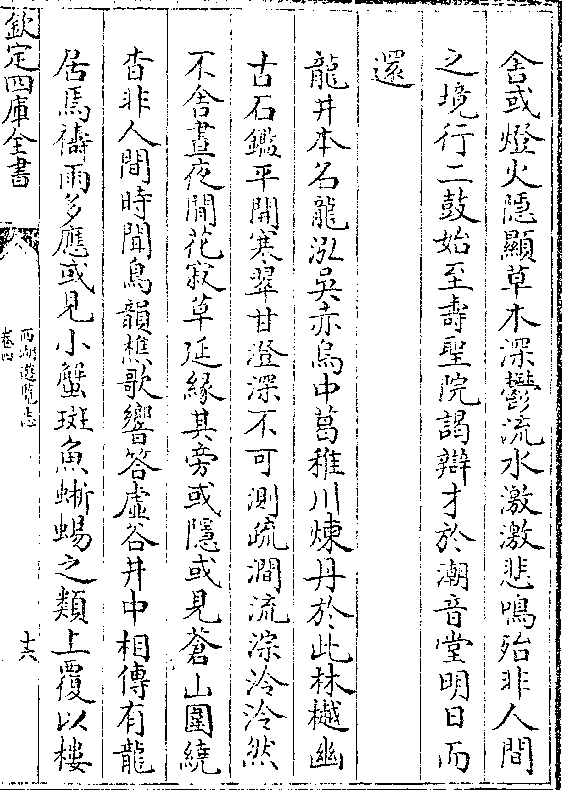 舍或燈火隱顯草木深鬱流水激激悲鳴殆非人間
之境行二鼓始至壽聖院謁辯才於潮音堂明日而
還
龍井本名龍泓吳赤烏中葛稚川煉丹於此林樾幽
古石鑑平開寒翠甘澄深不可測疏澗流淙泠泠然
不舍晝夜閒花寂草延緣其旁或隱或見蒼山圍繞
杳非人間時聞鳥韻樵歌響答虛谷井中相傳有龍
居焉禱雨多應或見小蟹斑魚蜥蜴之類上覆以樓
欽定四庫全書
西湖遊覽志
卷四
十六